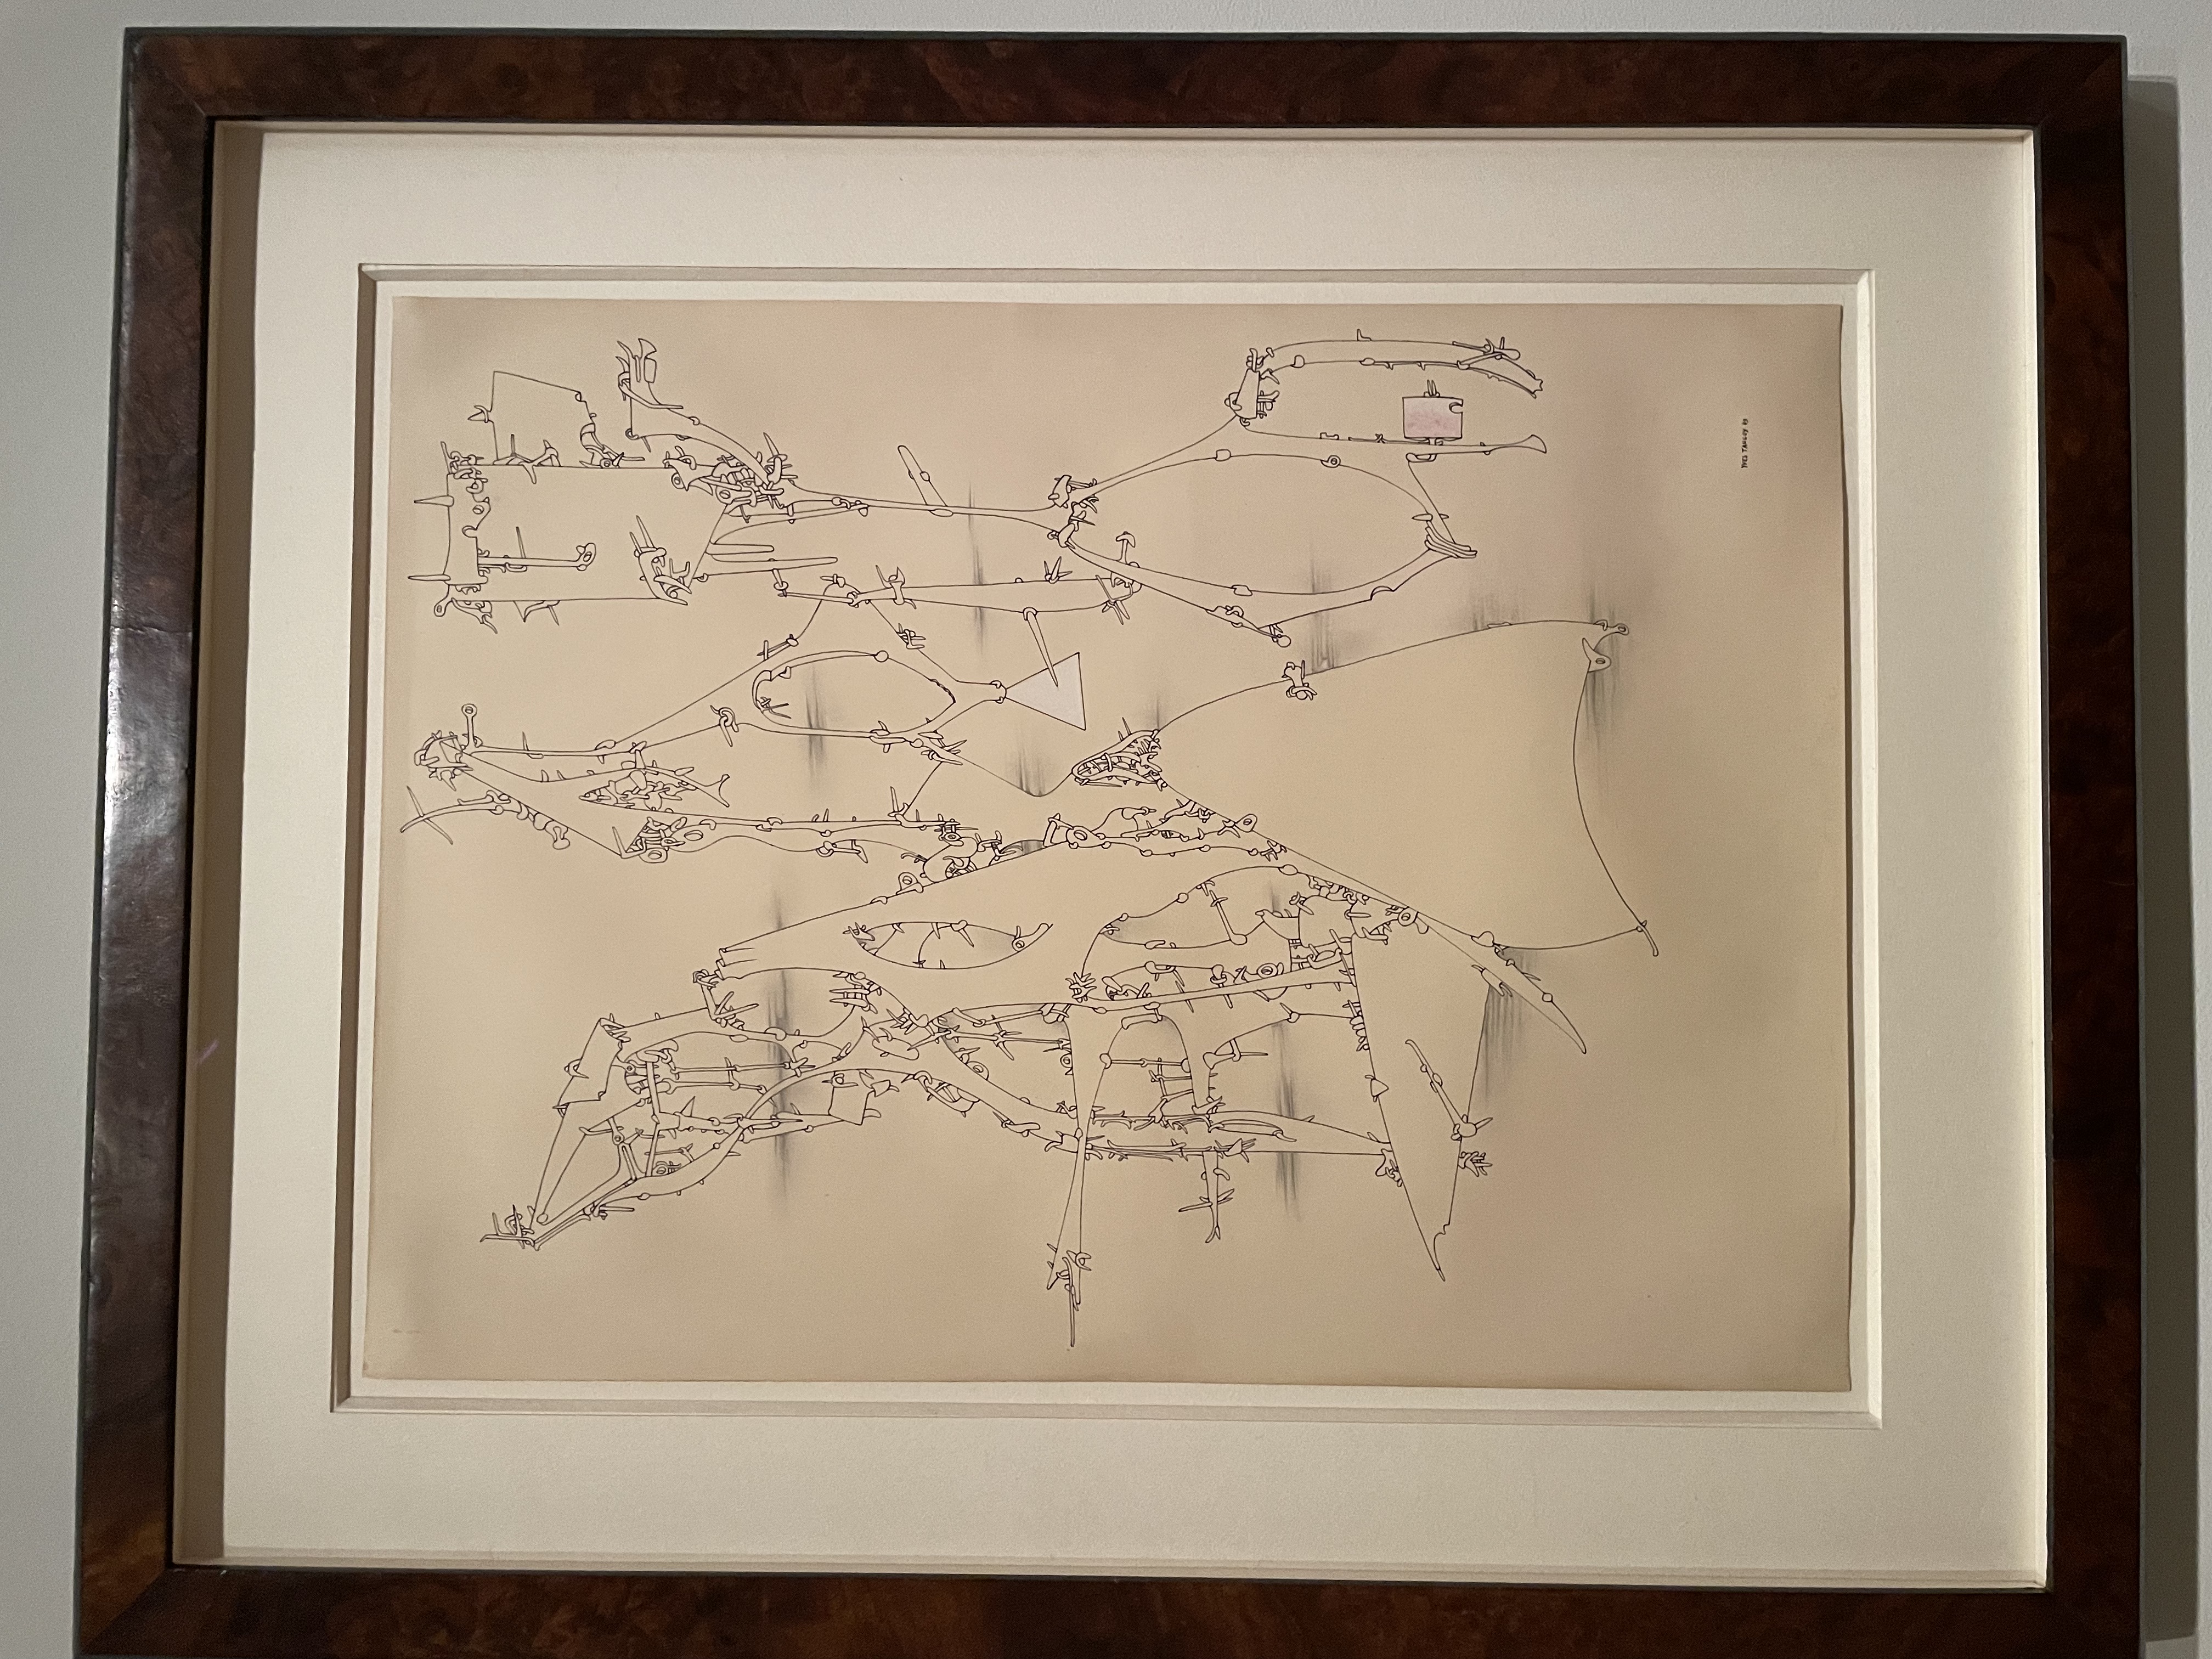 YVES TANGUY 49